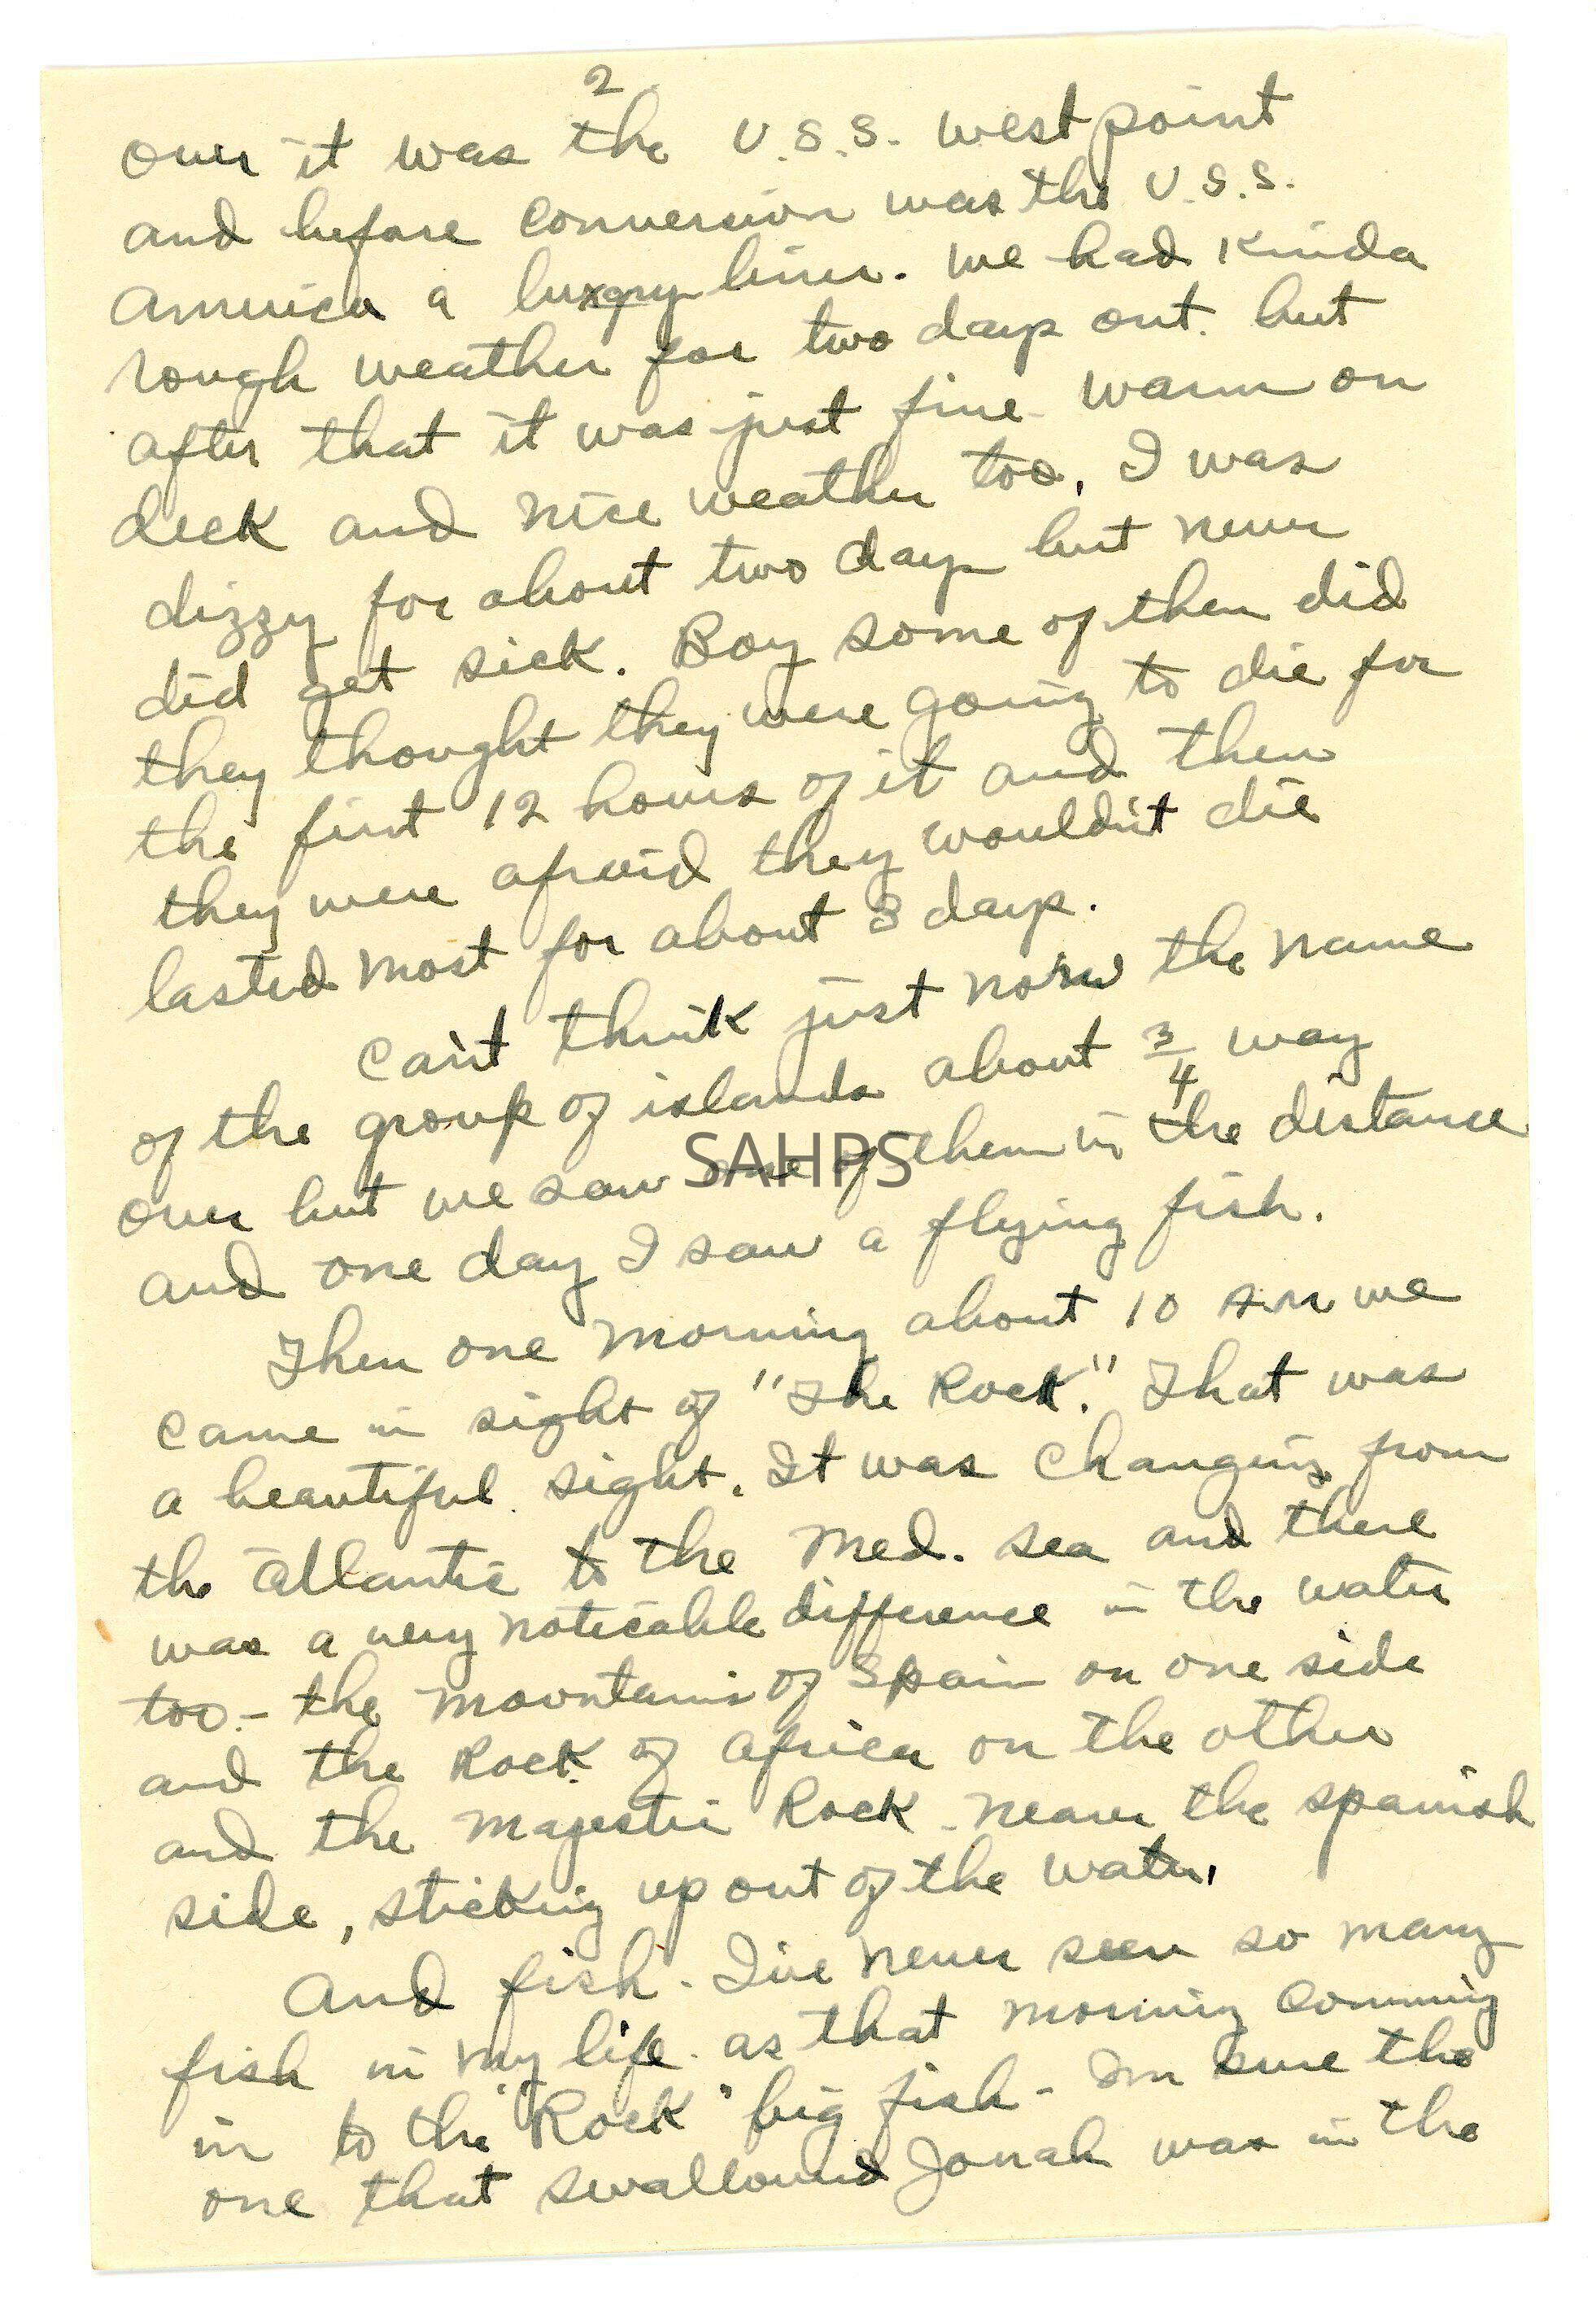 2
over it was the U.S.S. westpoint
and before conversion was the U.S.S.
America a luxgry liner. we had kinda
rough weather for two days out. but
after that it was just fine - warm on
deck and nice weather too. I was
dizzy for about two days but never
did get sick. Boy some of them did
they thought they were going to die for
the first 12 hours of it and then
they were afraid they wouldn't die
lasted most for about 3 days.
can't think just now the name
of the group of islands about 3/4 way
over but we saw one of them in the distance
and one day I saw a flying fish.
Then one morning about 10 we
came in sight of "The Rock." That was
a beautiful sight. It was changing from
the Atlantic to the Med. sea and there
was a very noticable difference in the water
too. - the mountains of Spain on one side
and the Rock of Africa on the other
and the majestic Rock - nearer the spanish
side, sticking up out of the water.
And fish - I've never seen so many
fish in my life as that morning comming
in to the "Rock" big fish - Im sure the
one that swallowed Jonah was in the
SAHPS